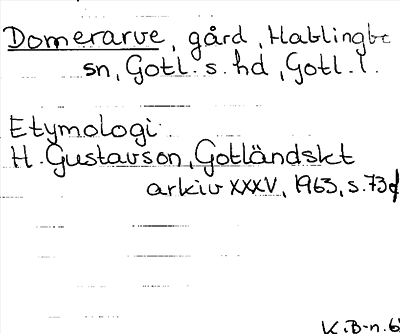 Domerarve, gård, Hablingbo
sn, Gotl. s. hd, Gotl. l.
Etymologi
H. Gustavson, Gotländskt
arkiv XXXV, 1963, s. 73
K.B-n. 6